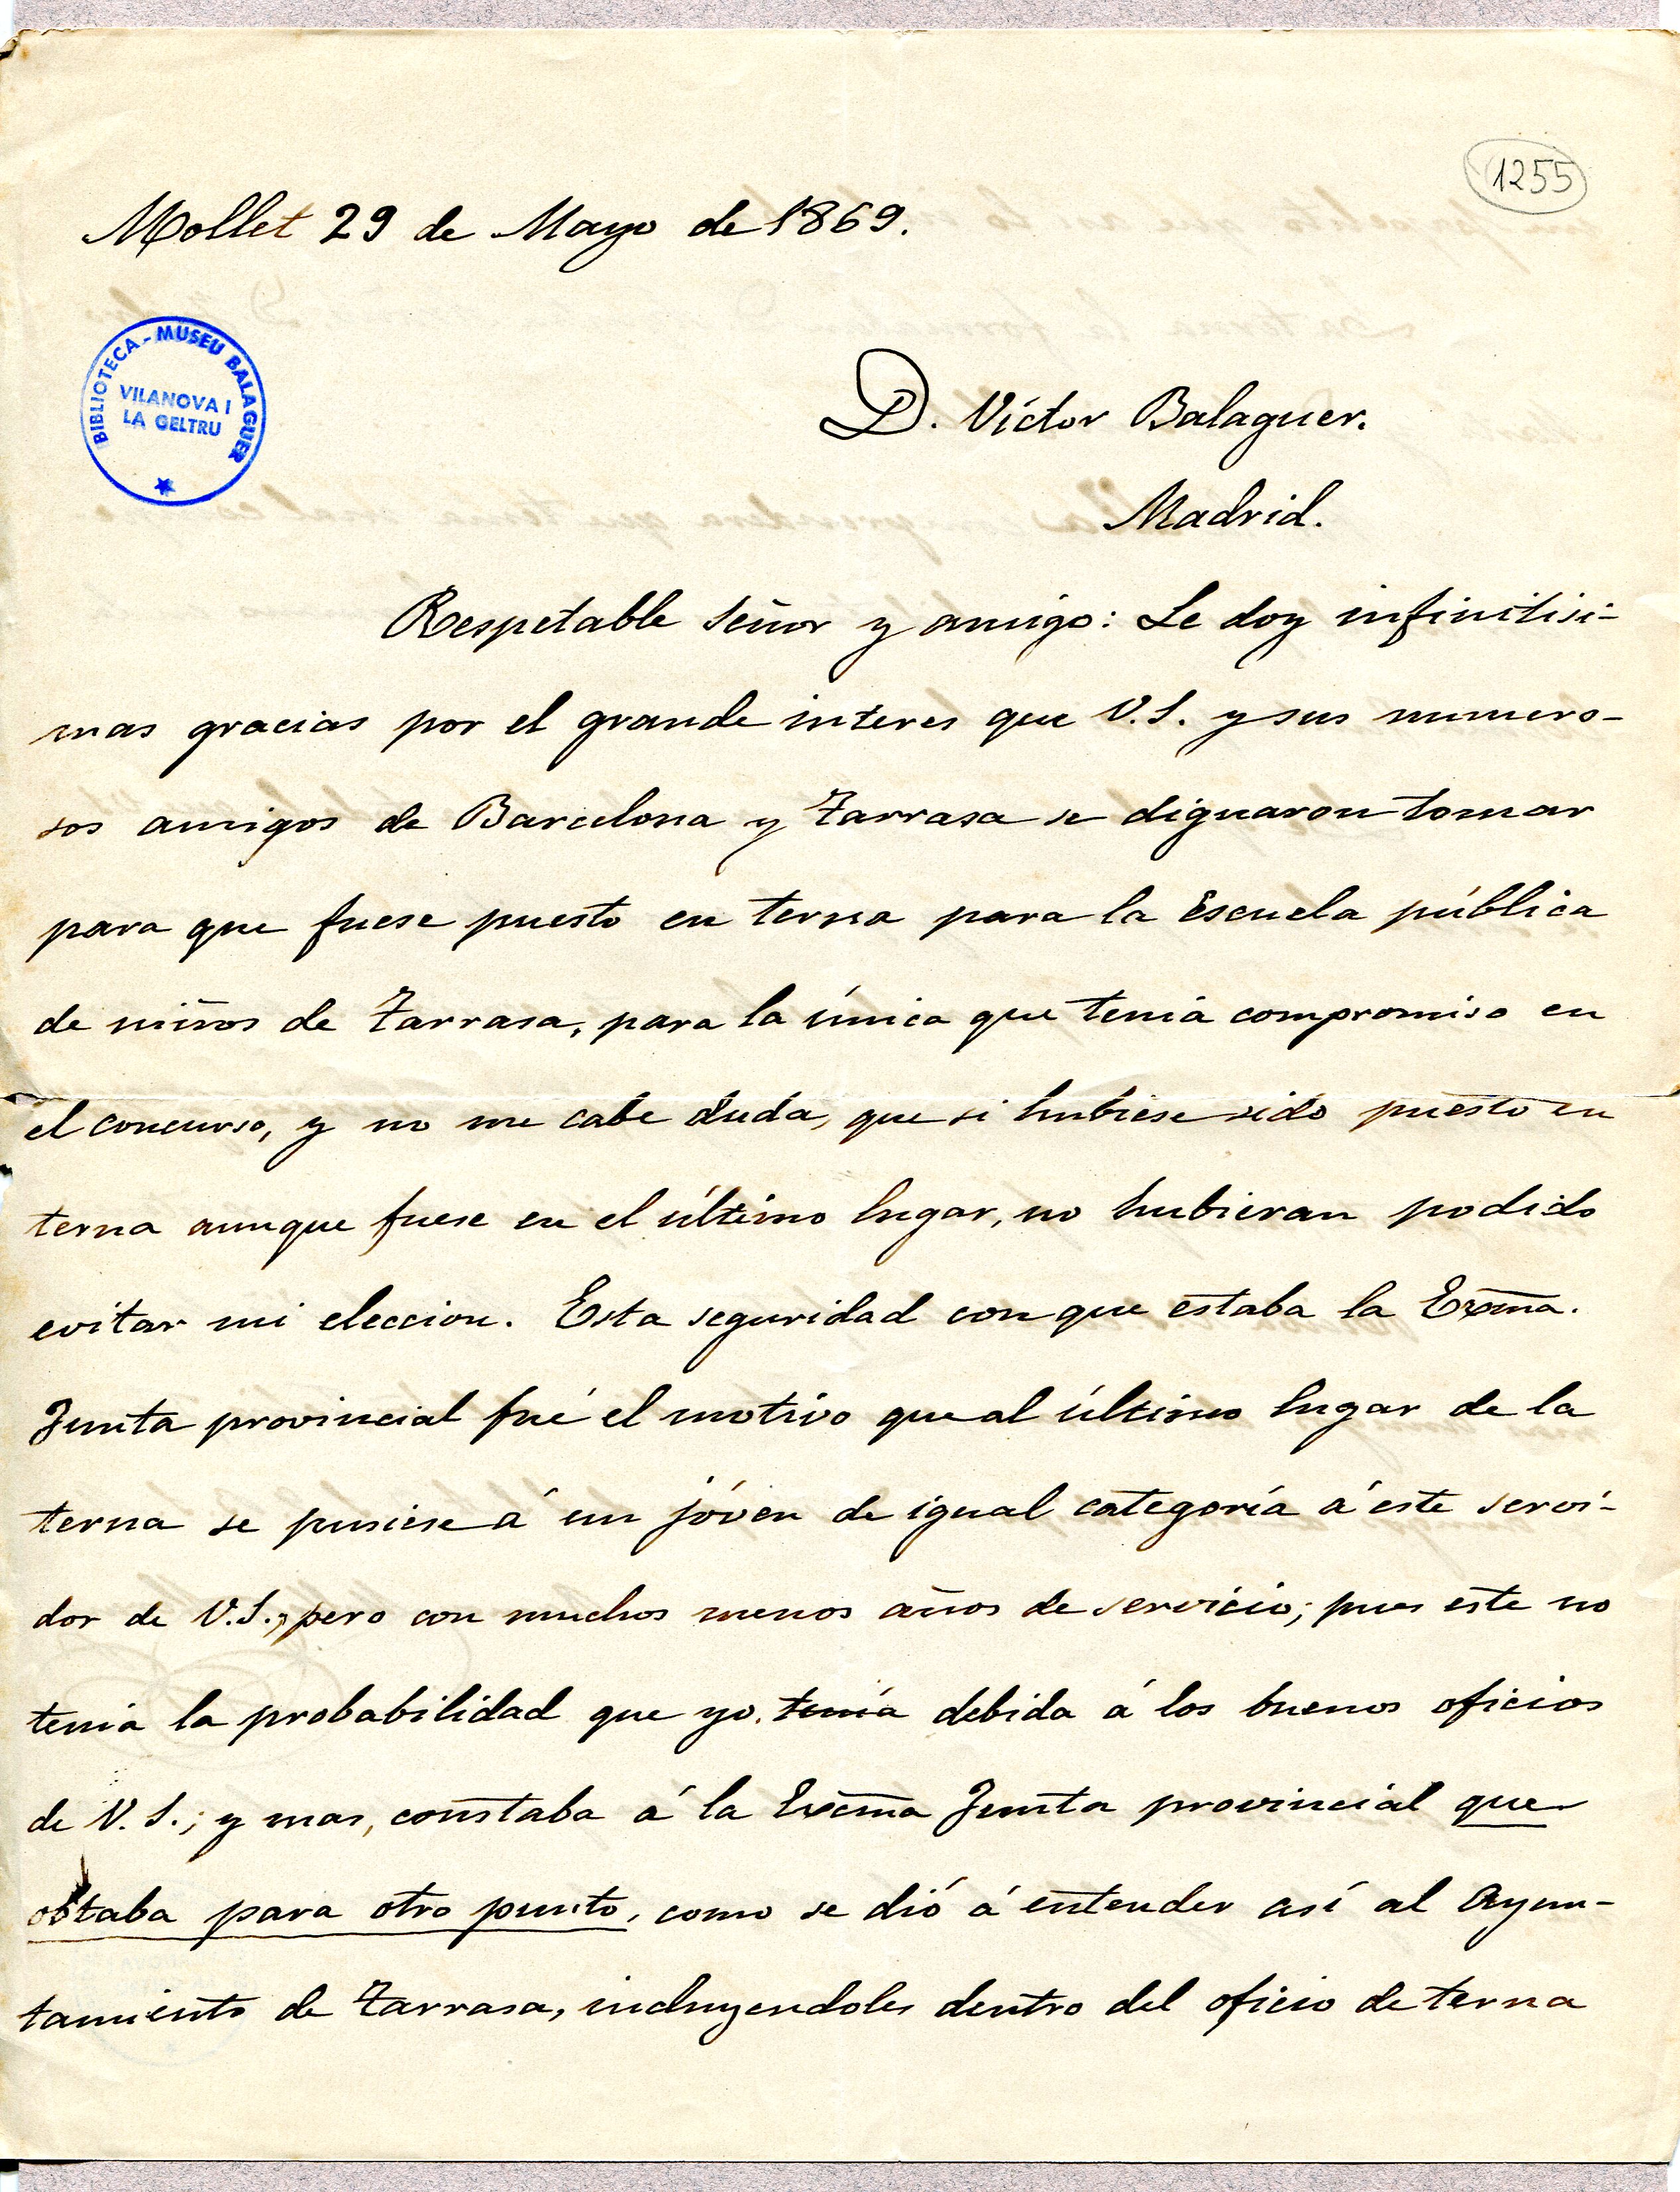 1255
Mollet 29 de Mayo de 1869.
BIBLIOTECA - MUSEU BALAGUER
VILANOVA I
LA GELTRU
D. Víctor Balaguer.
Madrid.
Respetable Señor y amigo: Le doy infinitisi-
mas gracias por el grande interes que V.S. y sus numero-
sos amigos de Barcelona y Tarrasa se dignaron tomar
para que fuese puesto en terna para la Escuela pública
de niños de Tarrasa, para la única que tenia compromiso en
el concurso, y no me cabe duda, que si hubiese sido puesto en
terna aunque fuese en el último lugar, no hubieran podido
evitar mi eleccion. Esta seguridad con que estaba la Exma.
Junta provincial fué el motivo que al último lugar de la
terna se pusiese á un jóven de igual categoría á este servi-
dor de V.S., pero con muchos menos años de servicio; pues este no
tenia la probabilidad que yo. tenía debida á los buenos oficios
de V.S.; y mas, constaba á la Excma Junta provincial que
obtaba para otro punto, como se dió á entender así al Ayun-
tamiento de Tarrasa, incluyendoles dentro del oficio de terna